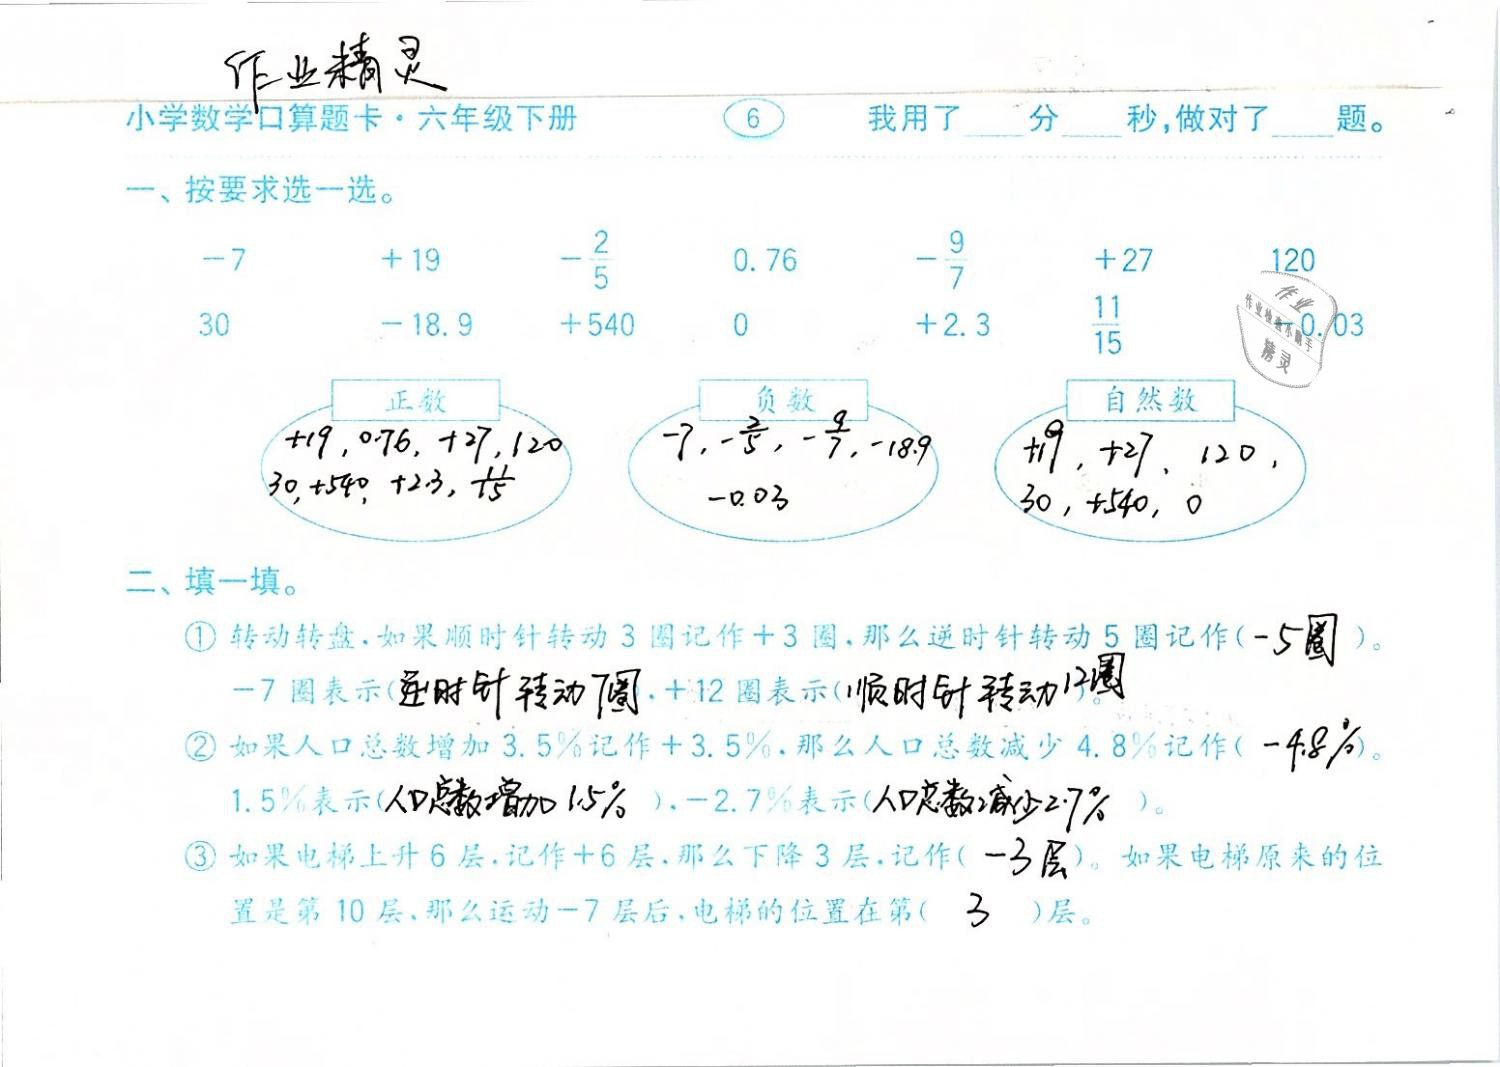 作业精灵
小学数学口算题卡·六年级下册 6 我用了____分____秒,做对了____题。
一、按要求选一选。
−7 +19 −2/5 0.76 −9/7 +27 120
30 −18.9 +540 0 +2.3 11/15 −0.03
作业
作业检查小助手
精灵
正数 负数 自然数
+19, 0.76, +27, 120 −7, −2/5, −9/7, −18.9 +19, +27, 120,
30, +540, +2.3, 11/15 −0.03 30, +540, 0
二、填一填。
① 转动转盘,如果顺时针转动3圈记作+3圈,那么逆时针转动5圈记作(−5圈)。
−7圈表示(逆时针转动7圈),+12圈表示(顺时针转动12圈)。
② 如果人口总数增加3.5%记作+3.5%,那么人口总数减少4.8%记作(−4.8%)。
1.5%表示(人口总数增加1.5%),−2.7%表示(人口总数减少2.7%)。
③ 如果电梯上升6层,记作+6层,那么下降3层,记作(−3层)。如果电梯原来的位
置是第10层,那么运动−7层后,电梯的位置在第(3)层。